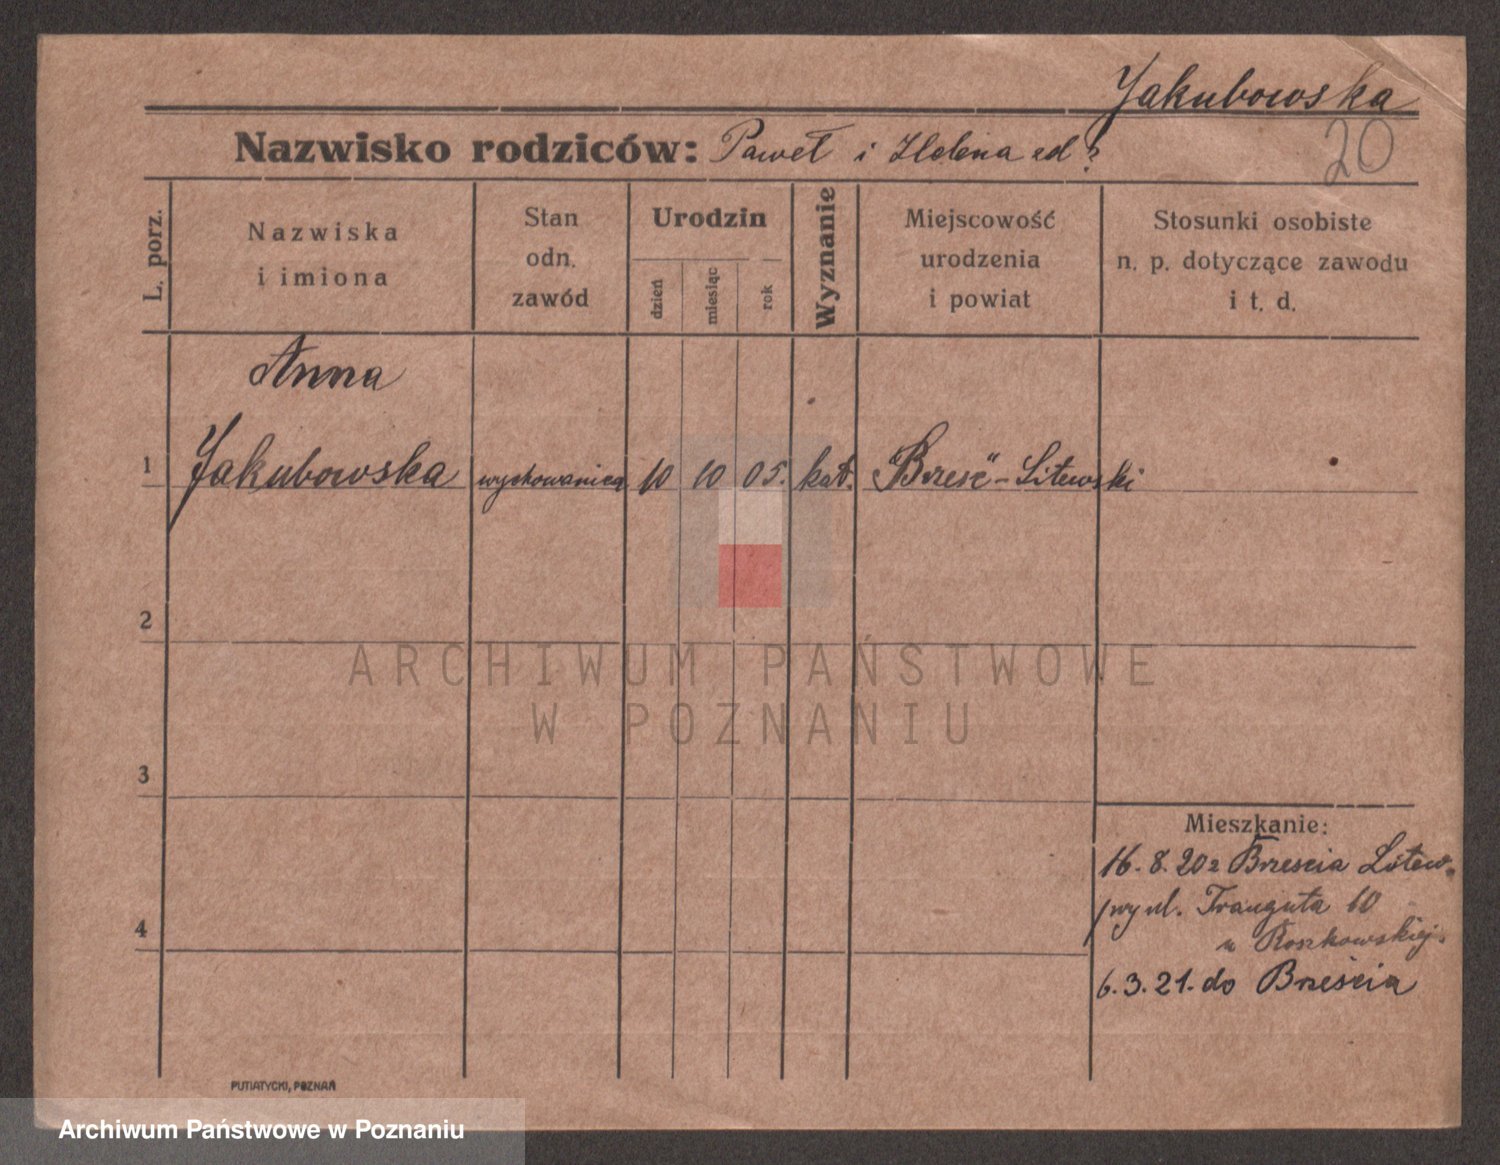 Jakubowska
20
Nazwisko rodziców: Paweł i Helena zd?
L. porz.
Nazwiska
i imiona
Stan
odn.
zawód
Urodzin
dzień
miesiąc
rok
Wyznanie
Miejscowość
urodzenia
i powiat
Stosunki osobiste
n. p. dotyczące zawodu
i t. d.
Anna
1 Jakubowska wychowanica 10 10 05. kat. "Brześć" - Litewski
2
ARCHIWUM PAŃSTWOWE
W POZNANIU
3
Mieszkanie:
16. 8. 20 z Brzescia Litew.
przy ul. Trauguta 10
4
u Roszkowskiej.
6. 3. 21. do Brześcia
PUTIATYCKI, POZNAŃ
Archiwum Państwowe w Poznaniu